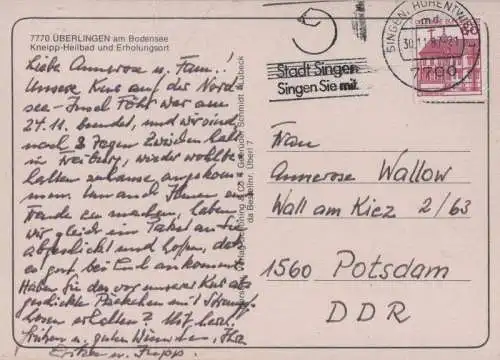 7770 ÜBERLINGEN am Bodensee
Kneipp-Heilbad und Erholungsort
Liebe Annerose u. Fam.!
Unsere Kur auf der Nord
see-Insel Föhr war am
24.11. beendet, und wir sind
nach 2 Tagen Zwischenhalt
in wieder wohlbe
halten zuhause angekom
men. Um auch Ihnen eine
Freude zu machen, haben
wir gleich ein Paket an Sie
abgeschickt und hoffen, daß
es gut bei Euch ankommt.
Haben Sie das vor unserer Kur ab
geschickte Päckchen mit Strumpf
hosen erhalten? Mit herzl.
Grüßen u. guten Wünschen, Ihre
u.
SINGEN, HOHENTWIEL
7700
Stadt Singen
Singen Sie mit
Frau
Annerose Wallow
Wall am Kiez 2/63
1560 Potsdam
DDR